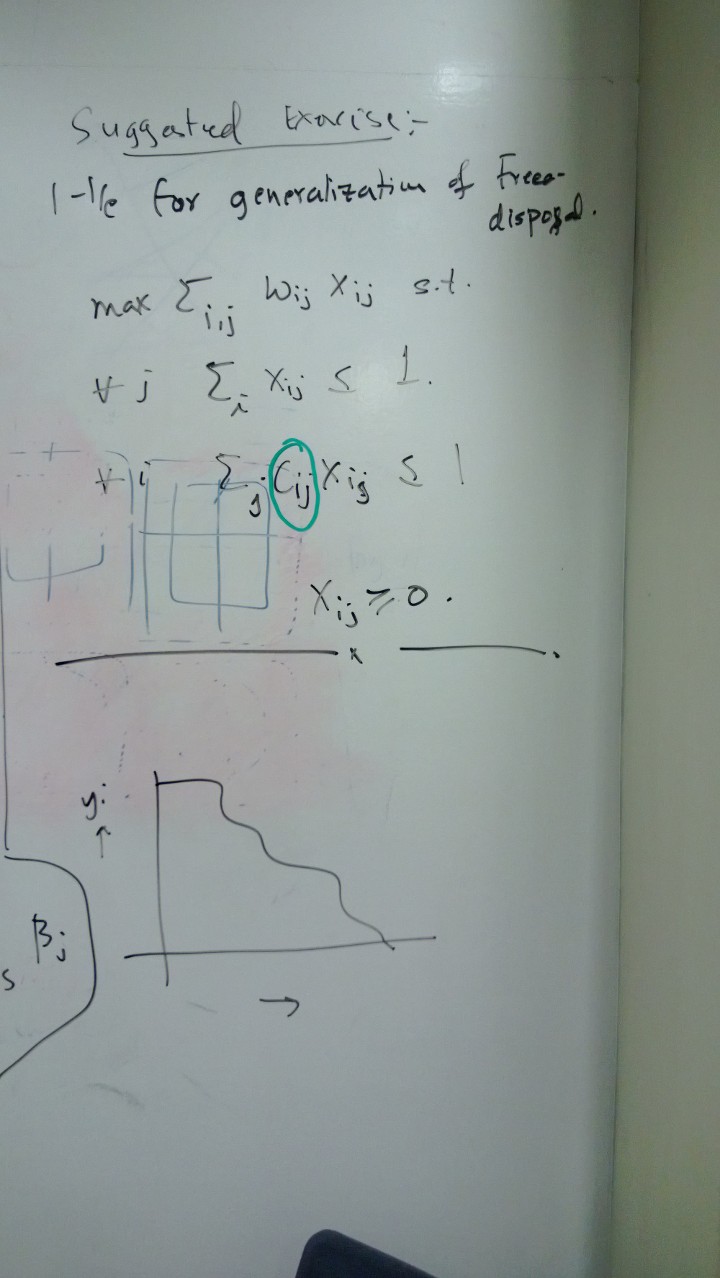 Suggested Exercise:-
1-1/e for generalization of Free-
disposal.
max Σ_{i,j} w_{ij} x_{ij} s.t.
∀ j Σ_i x_{ij} ≤ 1.
∀ i Σ_j c_{ij} x_{ij} ≤ 1
x_{ij} ≥ 0.
x
y_i
↑
β_j
s
→